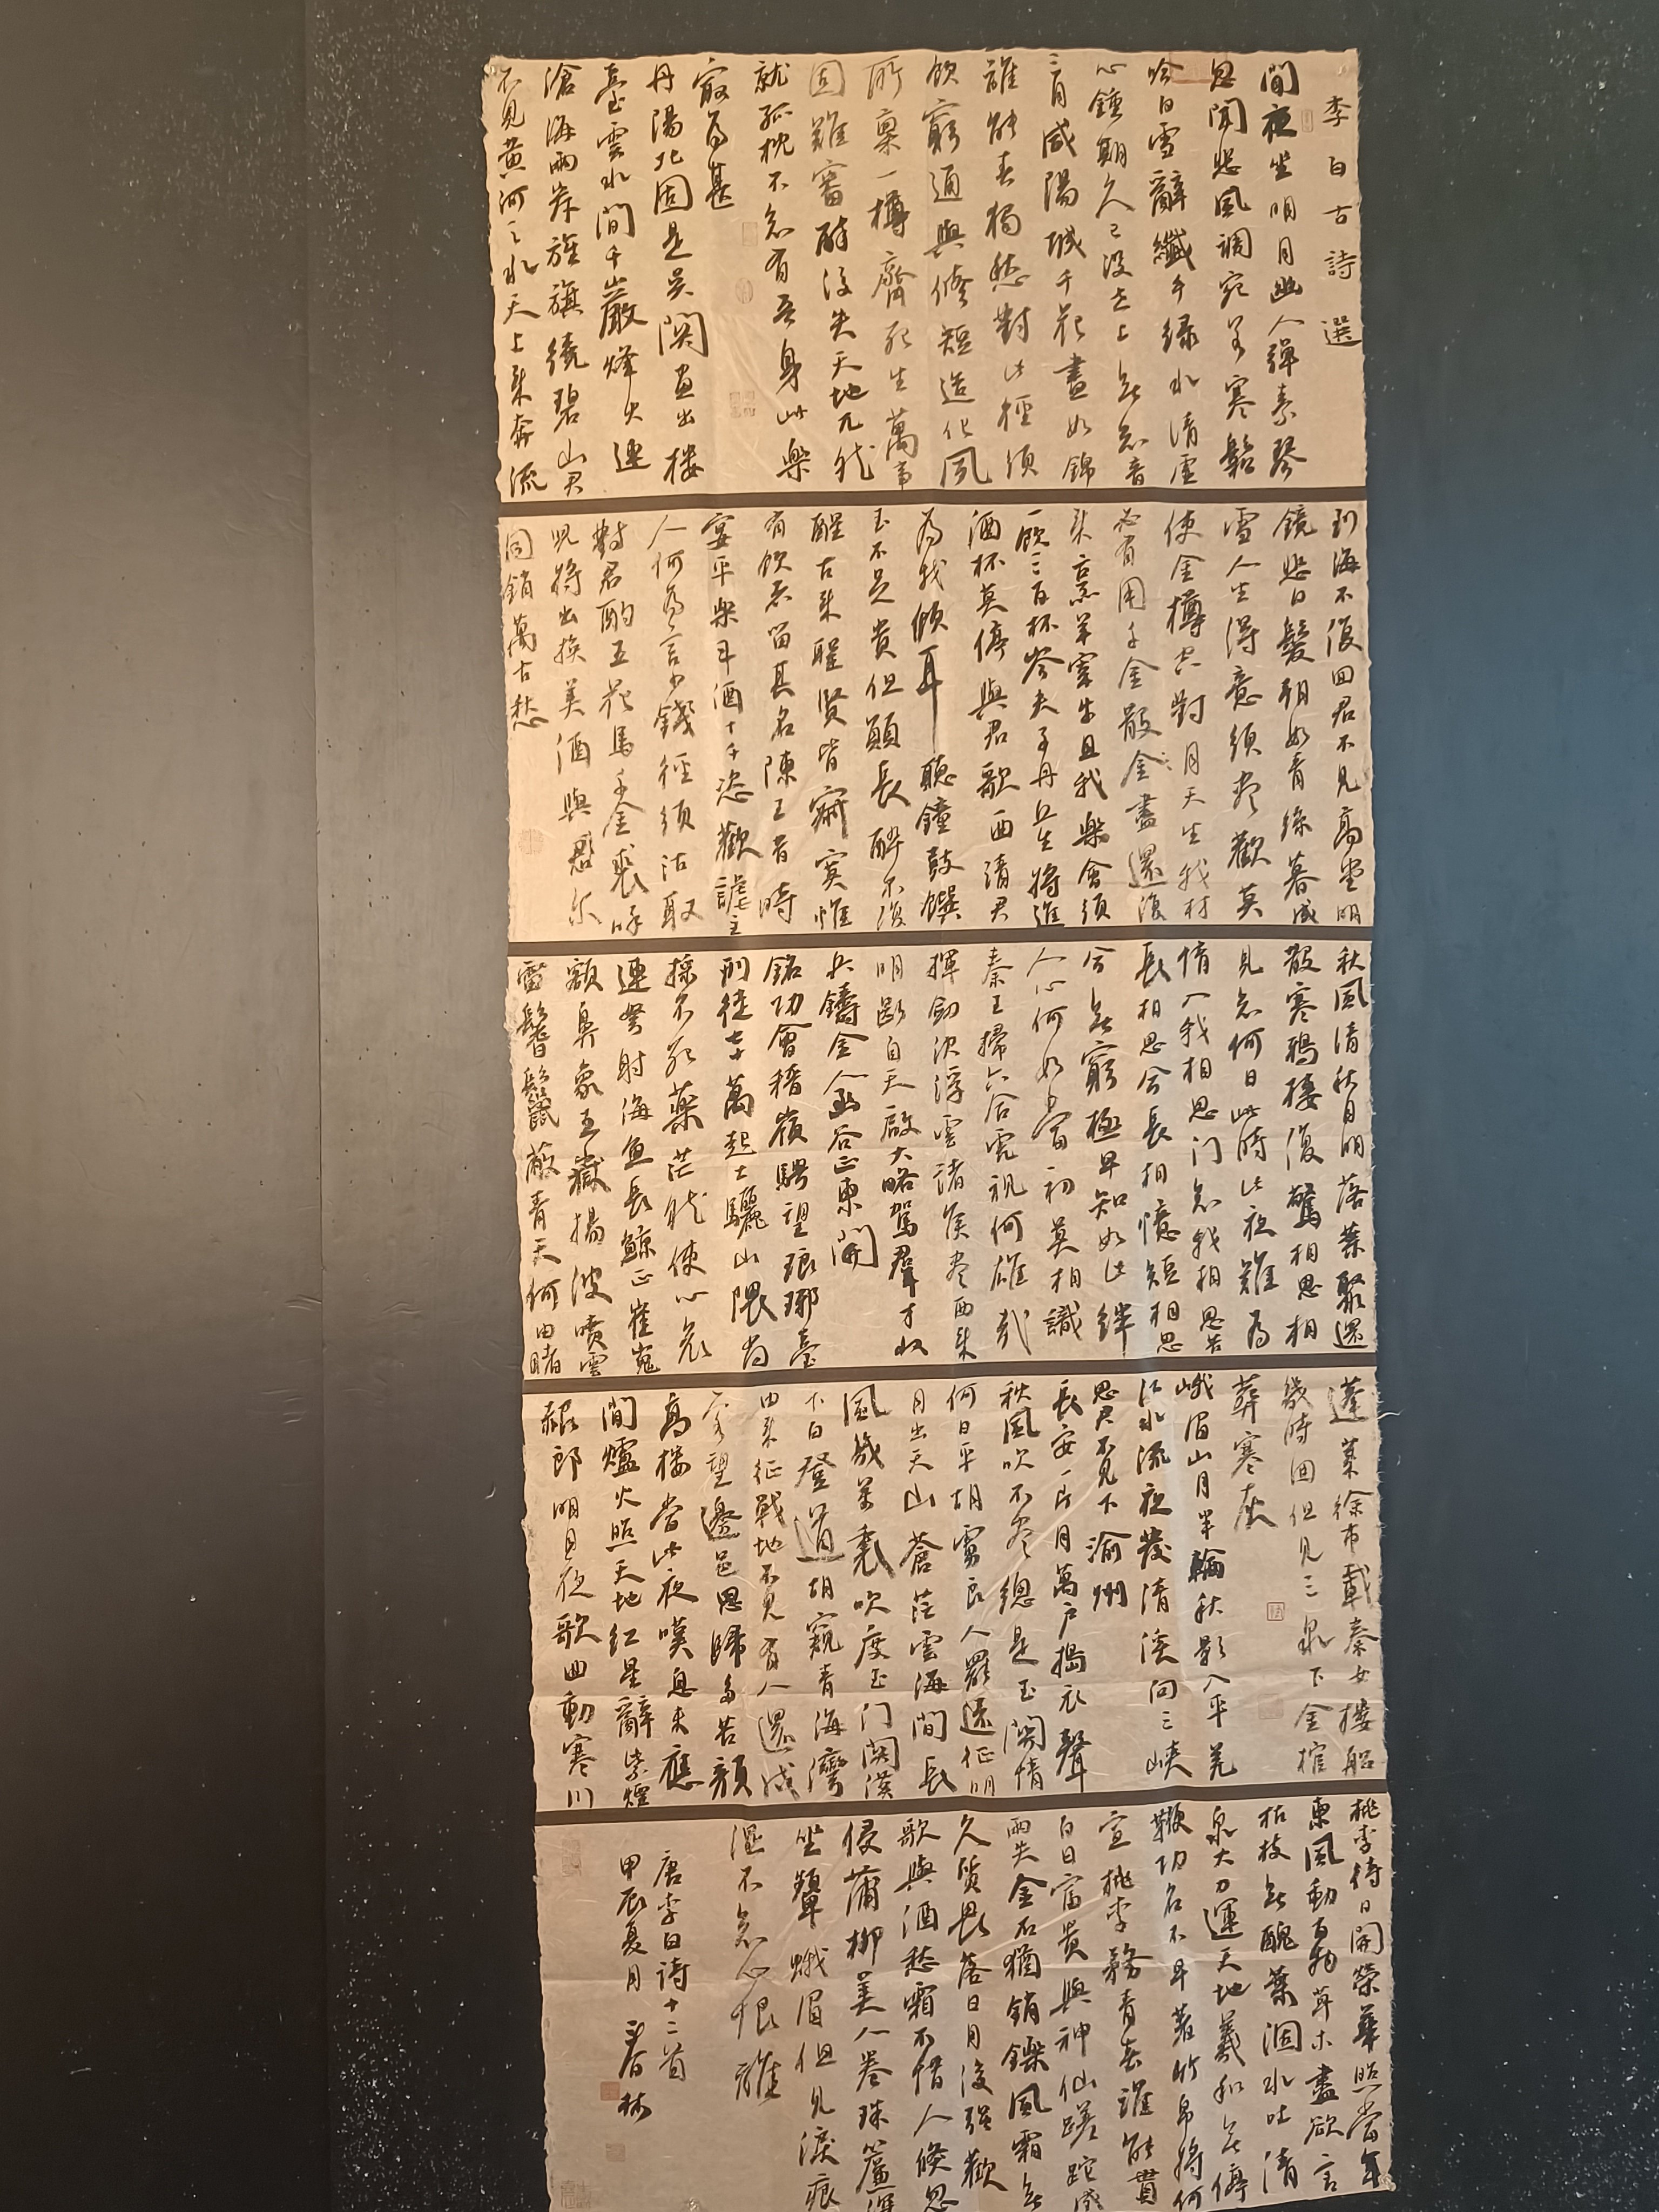 李白古詩選
閒夜坐明月幽人彈素琴
忽聞悲風調宛若寒松
吟白雪辭纖手綠水清虛
心鍾期久已沒世上無知音
三月咸陽城千花晝如錦
誰能春獨愁對此徑須
飲窮通與修短造化夙
所稟一樽齊死生萬事
固難審醉後失天地兀然
就孤枕不知有吾身此樂
最為甚
丹陽北固是吳關畫出樓
臺雲水間千巖烽火連
滄海兩岸旌旗繞碧山君
不見黃河之水天上來奔流
到海不復回君不見高堂明
鏡悲白髮朝如青絲暮成
雪人生得意須盡歡莫
使金樽空對月天生我材
必有用千金散金盡還復
來烹羊宰牛且我樂會須
一飲三百杯岑夫子丹丘生將進
酒杯莫停與君歌一曲請君
為我傾耳聽鐘鼓饌
玉不足貴但願長醉不復
醒古來聖賢皆寂寞惟
有飲者留其名陳王昔時
宴平樂斗酒十千恣歡謔主
人何為言少錢徑須沽取
對君酌五花馬千金裘呼
兒將出換美酒與君爾
同銷萬古愁
秋風清秋月明落葉聚還
散寒鴉棲復驚相思相
見知何日此時此夜難為
情入我相思門知我相思苦
長相思兮長相憶短相思
兮無窮極早知如此絆
人心何如當初莫相識
秦王掃六合虎視何雄哉
揮劍決浮雲諸侯盡西來
明斷自天啟大略駕群才收
兵鑄金人函谷正東開
銘功會稽嶺騁望琅琊臺
刑徒七十萬起土驪山隈尚
採不死藥茫然使心哀
連弩射海魚長鯨正崔嵬
額鼻象五嶽揚波噴雲
雷鬐鬣蔽青天何由睹
蓬萊徐市載秦女樓船
幾時回但見三泉下金棺
葬寒灰
峨眉山月半輪秋影入平羌
江水流夜發清溪向三峽
思君不見下渝州
長安一片月萬戶搗衣聲
秋風吹不盡總是玉關情
何日平胡虜良人罷遠征明
月出天山蒼茫雲海間長
風幾萬里吹度玉門關漢
下白登道胡窺青海灣
由來征戰地不見有人還戍
客望邊邑思歸多苦顏
高樓當此夜嘆息未應
閒爐火照天地紅星亂紫煙
赧郎明月夜歌曲動寒川
桃李待日開榮華照當年
東風動百物草木盡欲言
枯枝無醜葉涸水吐清
泉大力運天地羲和無停
鞭功名不早著竹帛將何
宣桃李務青春誰能貫
白日富貴與神仙蹉跎成
兩失金石猶銷鑠風霜無
久質畏落日月後強歡
歌與酒愁霜不惜人倏忽
侵蒲柳美人卷珠簾深
坐顰蛾眉但見淚痕
濕不知心恨誰
唐李白詩十二首
甲辰夏月